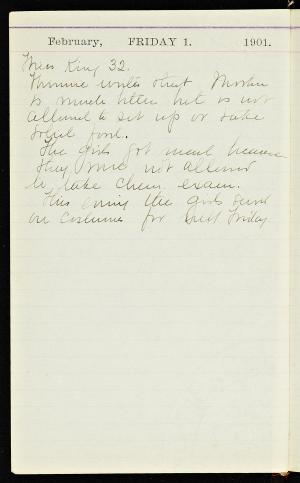 February, FRIDAY 1. 1901.
Miss King 32.
writes that Mother
is much better but is not
allowed to sit up or take
solid food.
The girls got mad because
they were not allowed
to take chem. exam.
This evening the girls
on costumes for next Friday